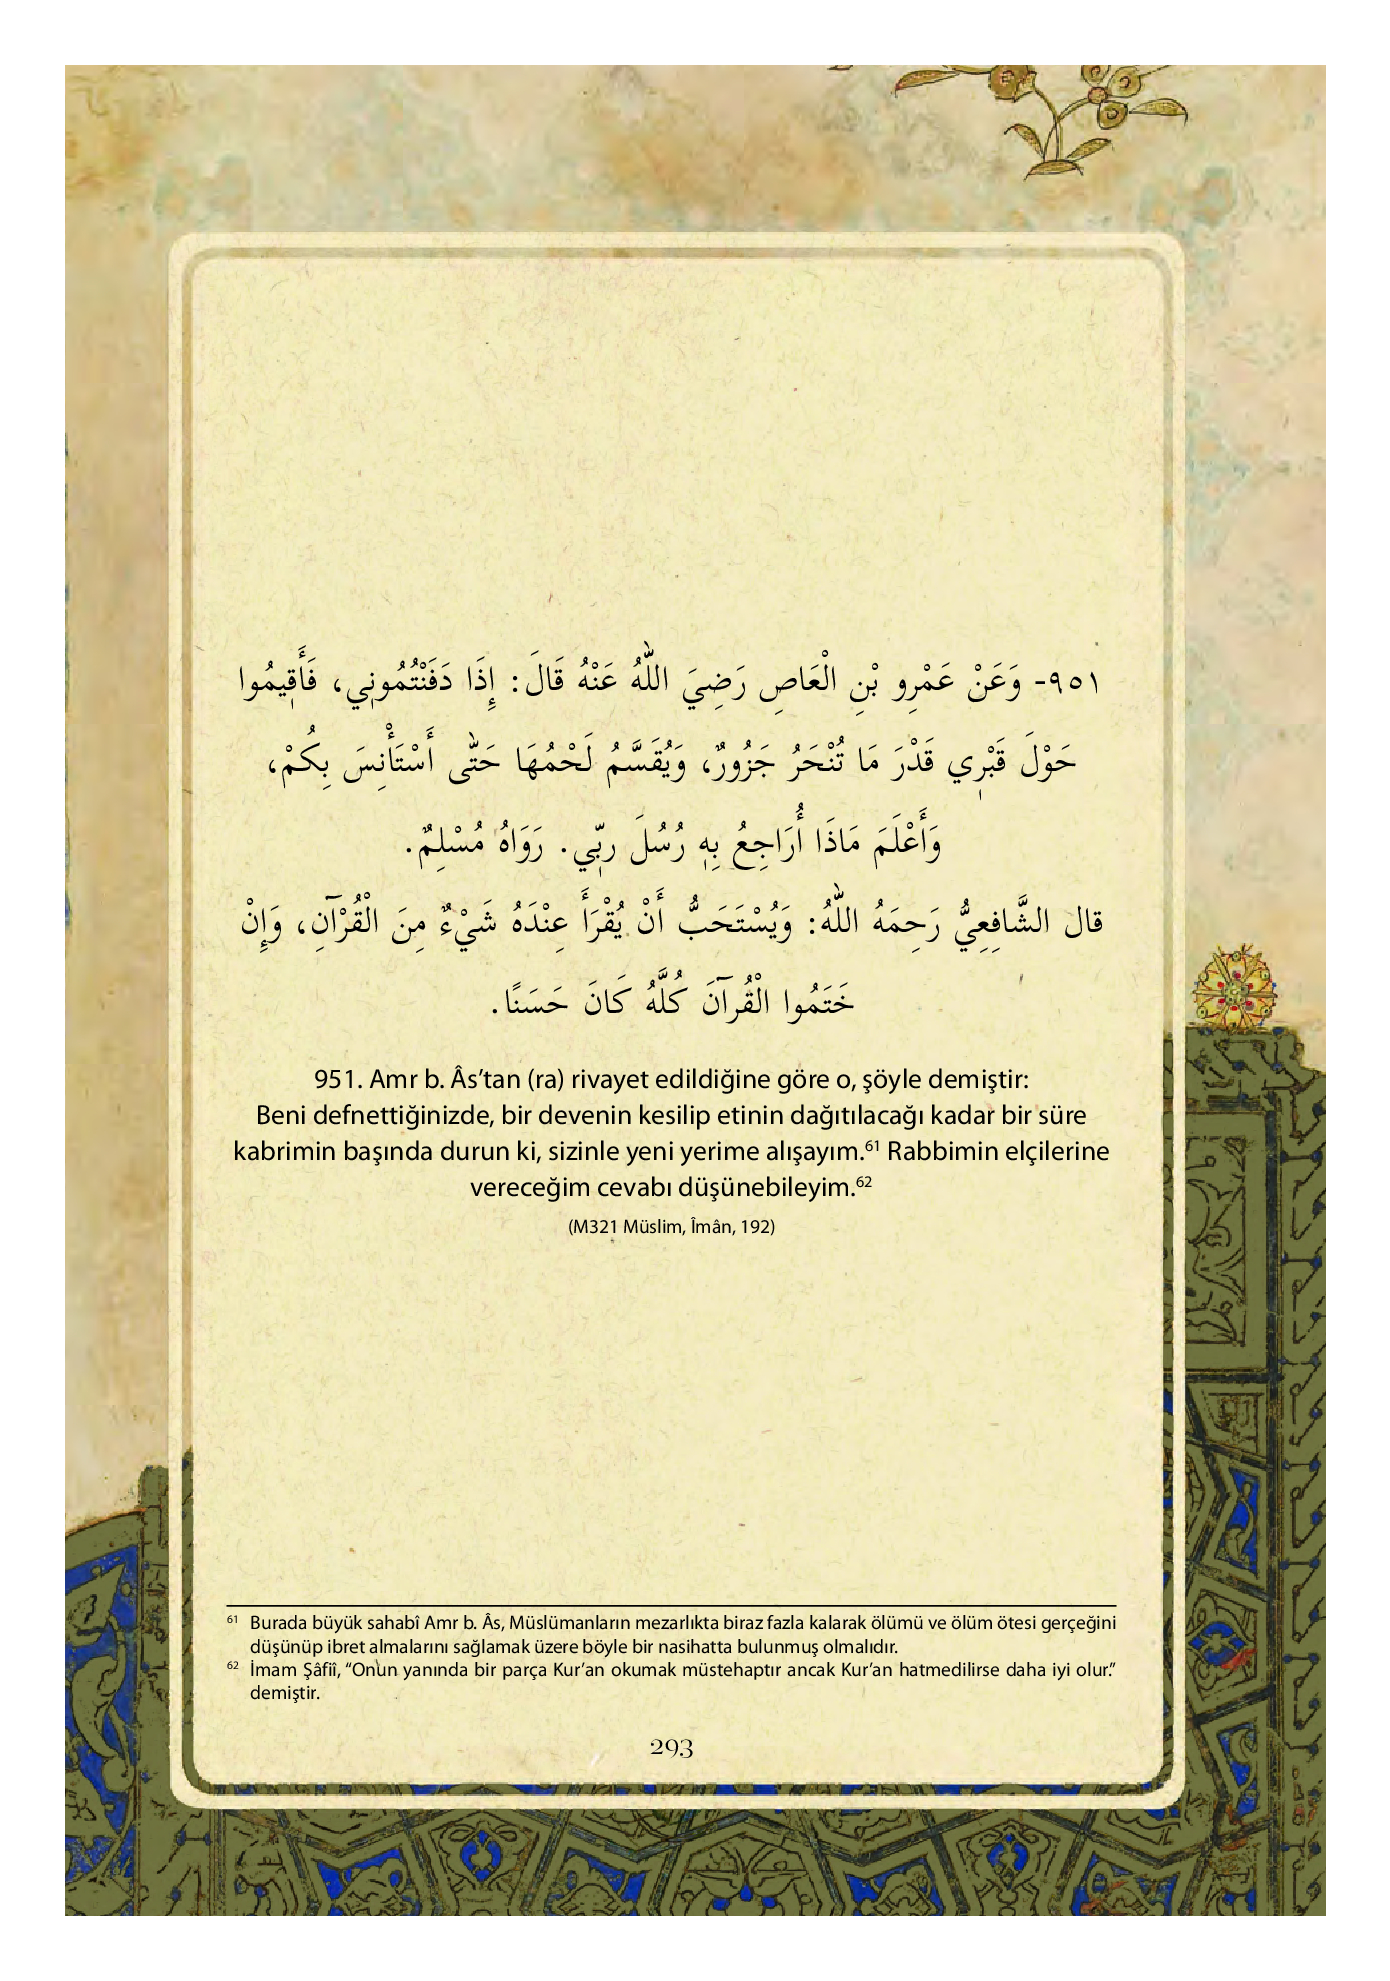 ٩٥١- وَعَنْ عَمْرِو بْنِ الْعَاصِ رَضِيَ اللّٰهُ عَنْهُ قَالَ: إِذَا دَفَنْتُمُونِي، فَأَقِيمُوا
حَوْلَ قَبْرِي قَدْرَ مَا تُنْحَرُ جَزُورٌ، وَيُقَسَّمُ لَحْمُهَا حَتّٰى أَسْتَأْنِسَ بِكُمْ،
وَأَعْلَمَ مَاذَا أُرَاجِعُ بِهِ رُسُلَ رَبِّي. رَوَاهُ مُسْلِمٌ.
قال الشَّافِعِيُّ رَحِمَهُ اللّٰهُ: وَيُسْتَحَبُّ أَنْ يُقْرَأَ عِنْدَهُ شَيْءٌ مِنَ الْقُرْآنِ، وَإِنْ
خَتَمُوا الْقُرآنَ كُلَّهُ كَانَ حَسَنًا.
951. Amr b. Âs’tan (ra) rivayet edildiğine göre o, şöyle demiştir:
Beni defnettiğinizde, bir devenin kesilip etinin dağıtılacağı kadar bir süre
kabrimin başında durun ki, sizinle yeni yerime alışayım.⁶¹ Rabbimin elçilerine
vereceğim cevabı düşünebileyim.⁶²
(M321 Müslim, Îmân, 192)
⁶¹ Burada büyük sahabî Amr b. Âs, Müslümanların mezarlıkta biraz fazla kalarak ölümü ve ölüm ötesi gerçeğini
düşünüp ibret almalarını sağlamak üzere böyle bir nasihatta bulunmuş olmalıdır.
⁶² İmam Şâfiî, “Onun yanında bir parça Kur’an okumak müstehaptır ancak Kur’an hatmedilirse daha iyi olur.”
demiştir.
293